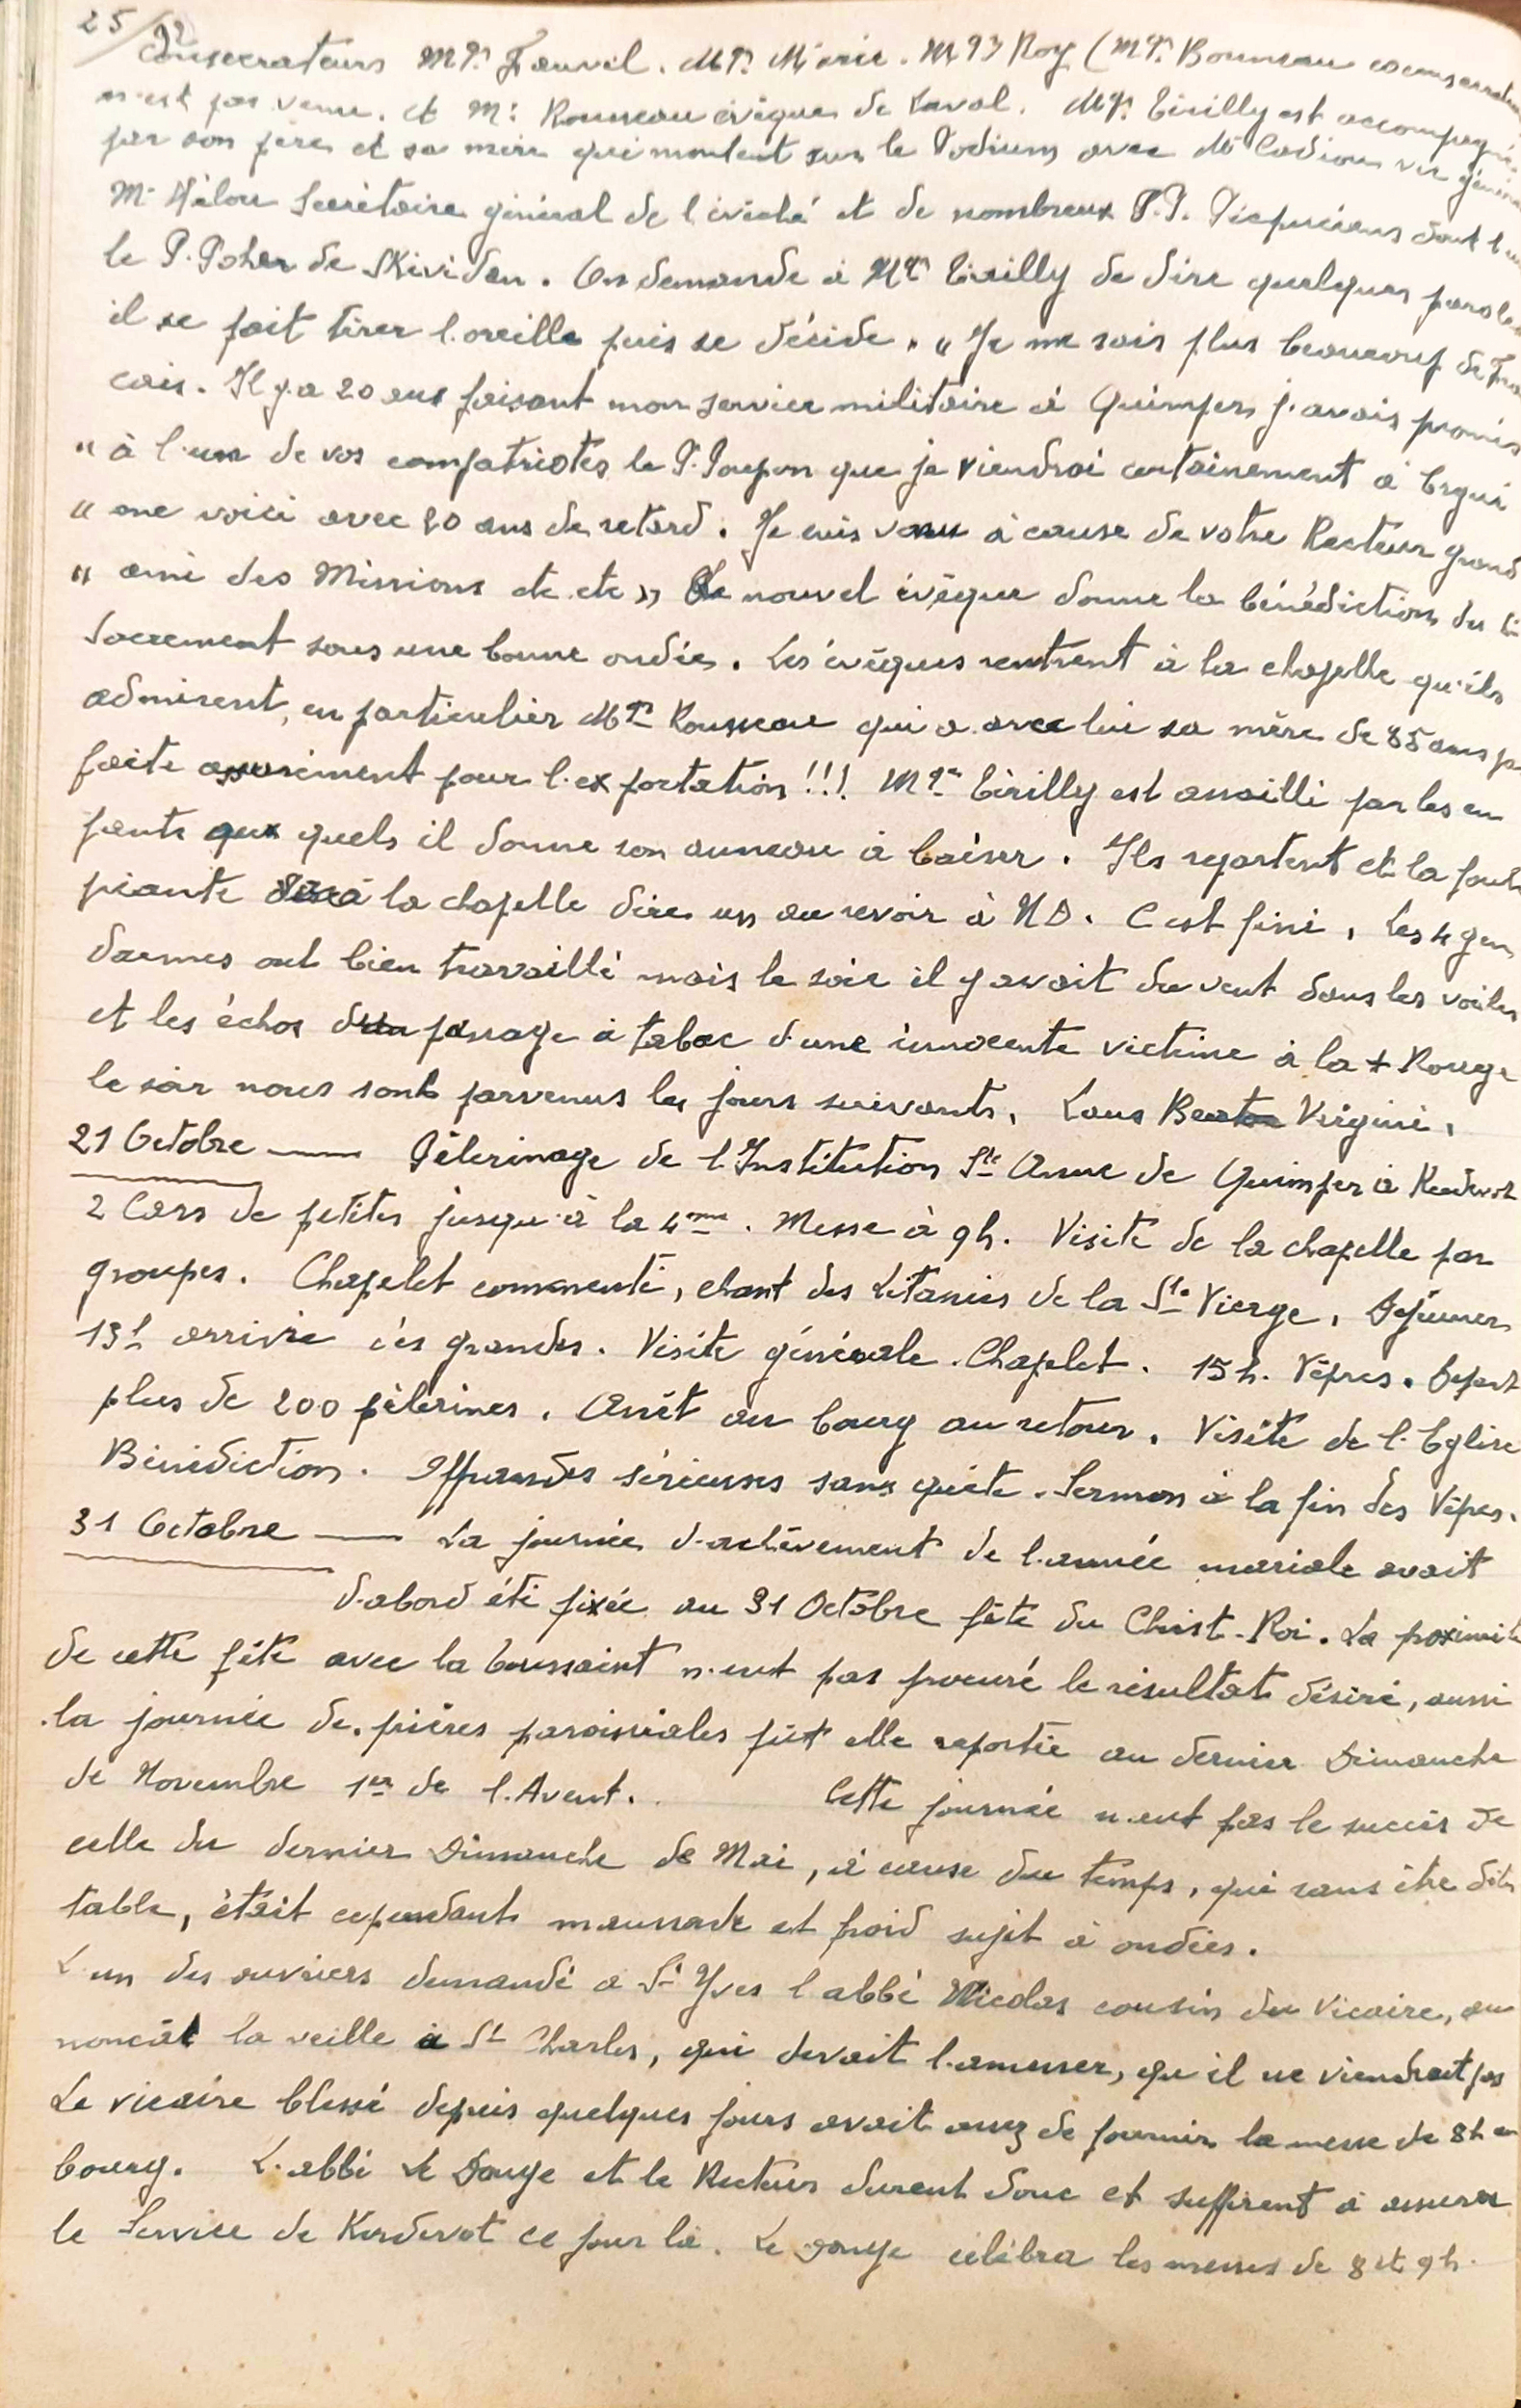 25/
Consecrateurs Mgr Fauvel. Mgr Marie. Mgr Roy (Mgr Bonneau
n'est pas venu. et Mr Rousseau évêque de Laval. Mgr Tirilly est accompagné
par son père et sa mère qui montent sur le Podium avec Mr Cadiou vic général
Mr Hélou Secrétaire général de l'évêché et de nombreux P.P. Picpuciens dont
le P. Poher de Skividen. On demande à Mgr Tirilly de dire quelques paroles
il se fait tirer l'oreille puis se décide. "Je ne sais plus beaucoup de fran
cais. Il y a 20 ans faisant mon service militaire à Quimper j'avais promis
" à l'un de vos compatriotes le P. Poupon que je viendrai certainement à Ergué
" me voici avec 20 ans de retard. Je suis venu à cause de votre Recteur grand
" ami des Missions etc etc » Le nouvel évêque donne la bénédiction du St
Sacrement sous une bonne ondée. Les évêques rentrent à la chapelle qu'ils
admirent, en particulier Mgr Rousseau qui a avec lui sa mère de 85 ans pa
faite assurément pour l'exportation!!! Mgr Tirilly est assailli par les en
fants aux quels il donne son anneau à baiser. Ils repartent et la foule
piante à la chapelle dire un au revoir à ND. C'est fini. Les 4 gen
darmes ont bien travaillé mais le soir il y avait du vent dans les voiles
et les échos d'un passage à tabac d'une innocente victime à la + Rouge
le soir nous sont parvenus les jours suivants. Laus Virgini.
21 Octobre — Pèlerinage de l'Institution Ste Anne de Quimper à Kerdevot
2 Cars de petites jusqu'à la 4eme. Messe à 9h. Visite de la chapelle par
groupes. Chapelet commenté, chant des Litanies de la Ste Vierge. Déjeuner
13h arrivée des grandes. Visite générale. Chapelet. 15h. Vêpres. Départ
plus de 200 pèlerines. Arrêt au bourg au retour. Visite de l'Eglise
Bénédiction. Offrandes sérieuses sans quête. Sermon à la fin des Vêpres.
31 Octobre — La journée d'achèvement de l'année mariale avait
d'abord été fixée au 31 Octobre fête du Christ-Roi. La poximité
de cette fête avec la Toussaint n'eut pas procuré le résultat désiré, aussi
la journée de prières paroissiales fût elle reportée au dernier Dimanche
de Novembre 1er de l'Avent. Cette journée n'eut pas le succès de
celle du dernier Dimanche de Mai, à cause du temps, qui sans être détes
table, était cependant maussade et froid sujet à ondées.
L'un des ouvriers demandé a St Yves l'abbé Nicolas cousin du Vicaire, an
noncât la veille à St Charles, qui devait l'amener, qu'il ne viendrait pas
Le vicaire blessé depuis quelques jours avait assez de fournir la messe de 8h au
bourg. L'abbé Le Douge et le Recteur durent donc et suffirent à assurer
le Service de Kerdevot ce jour là. Le Douge célébra les messes de 8 et 9h.